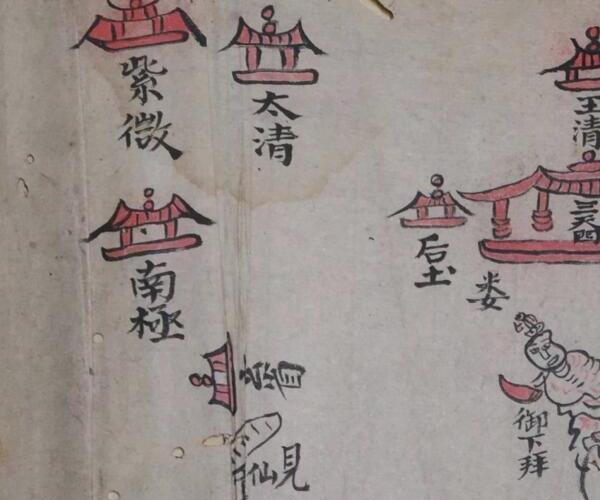 玉清
三天門
御下拜
娄
后土
太清
紫微
南極
見
仙